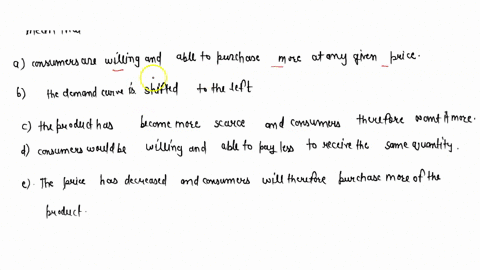 a) consumers are willing and able to purchase more at any given price.
b) the demand curve is shifted to the left
c) the product has become more scarce and consumers therefore want it more.
d) consumers would be willing and able to pay less to receive the same quantity.
e). The price has decreased and consumers will therefore purchase more of the
product.